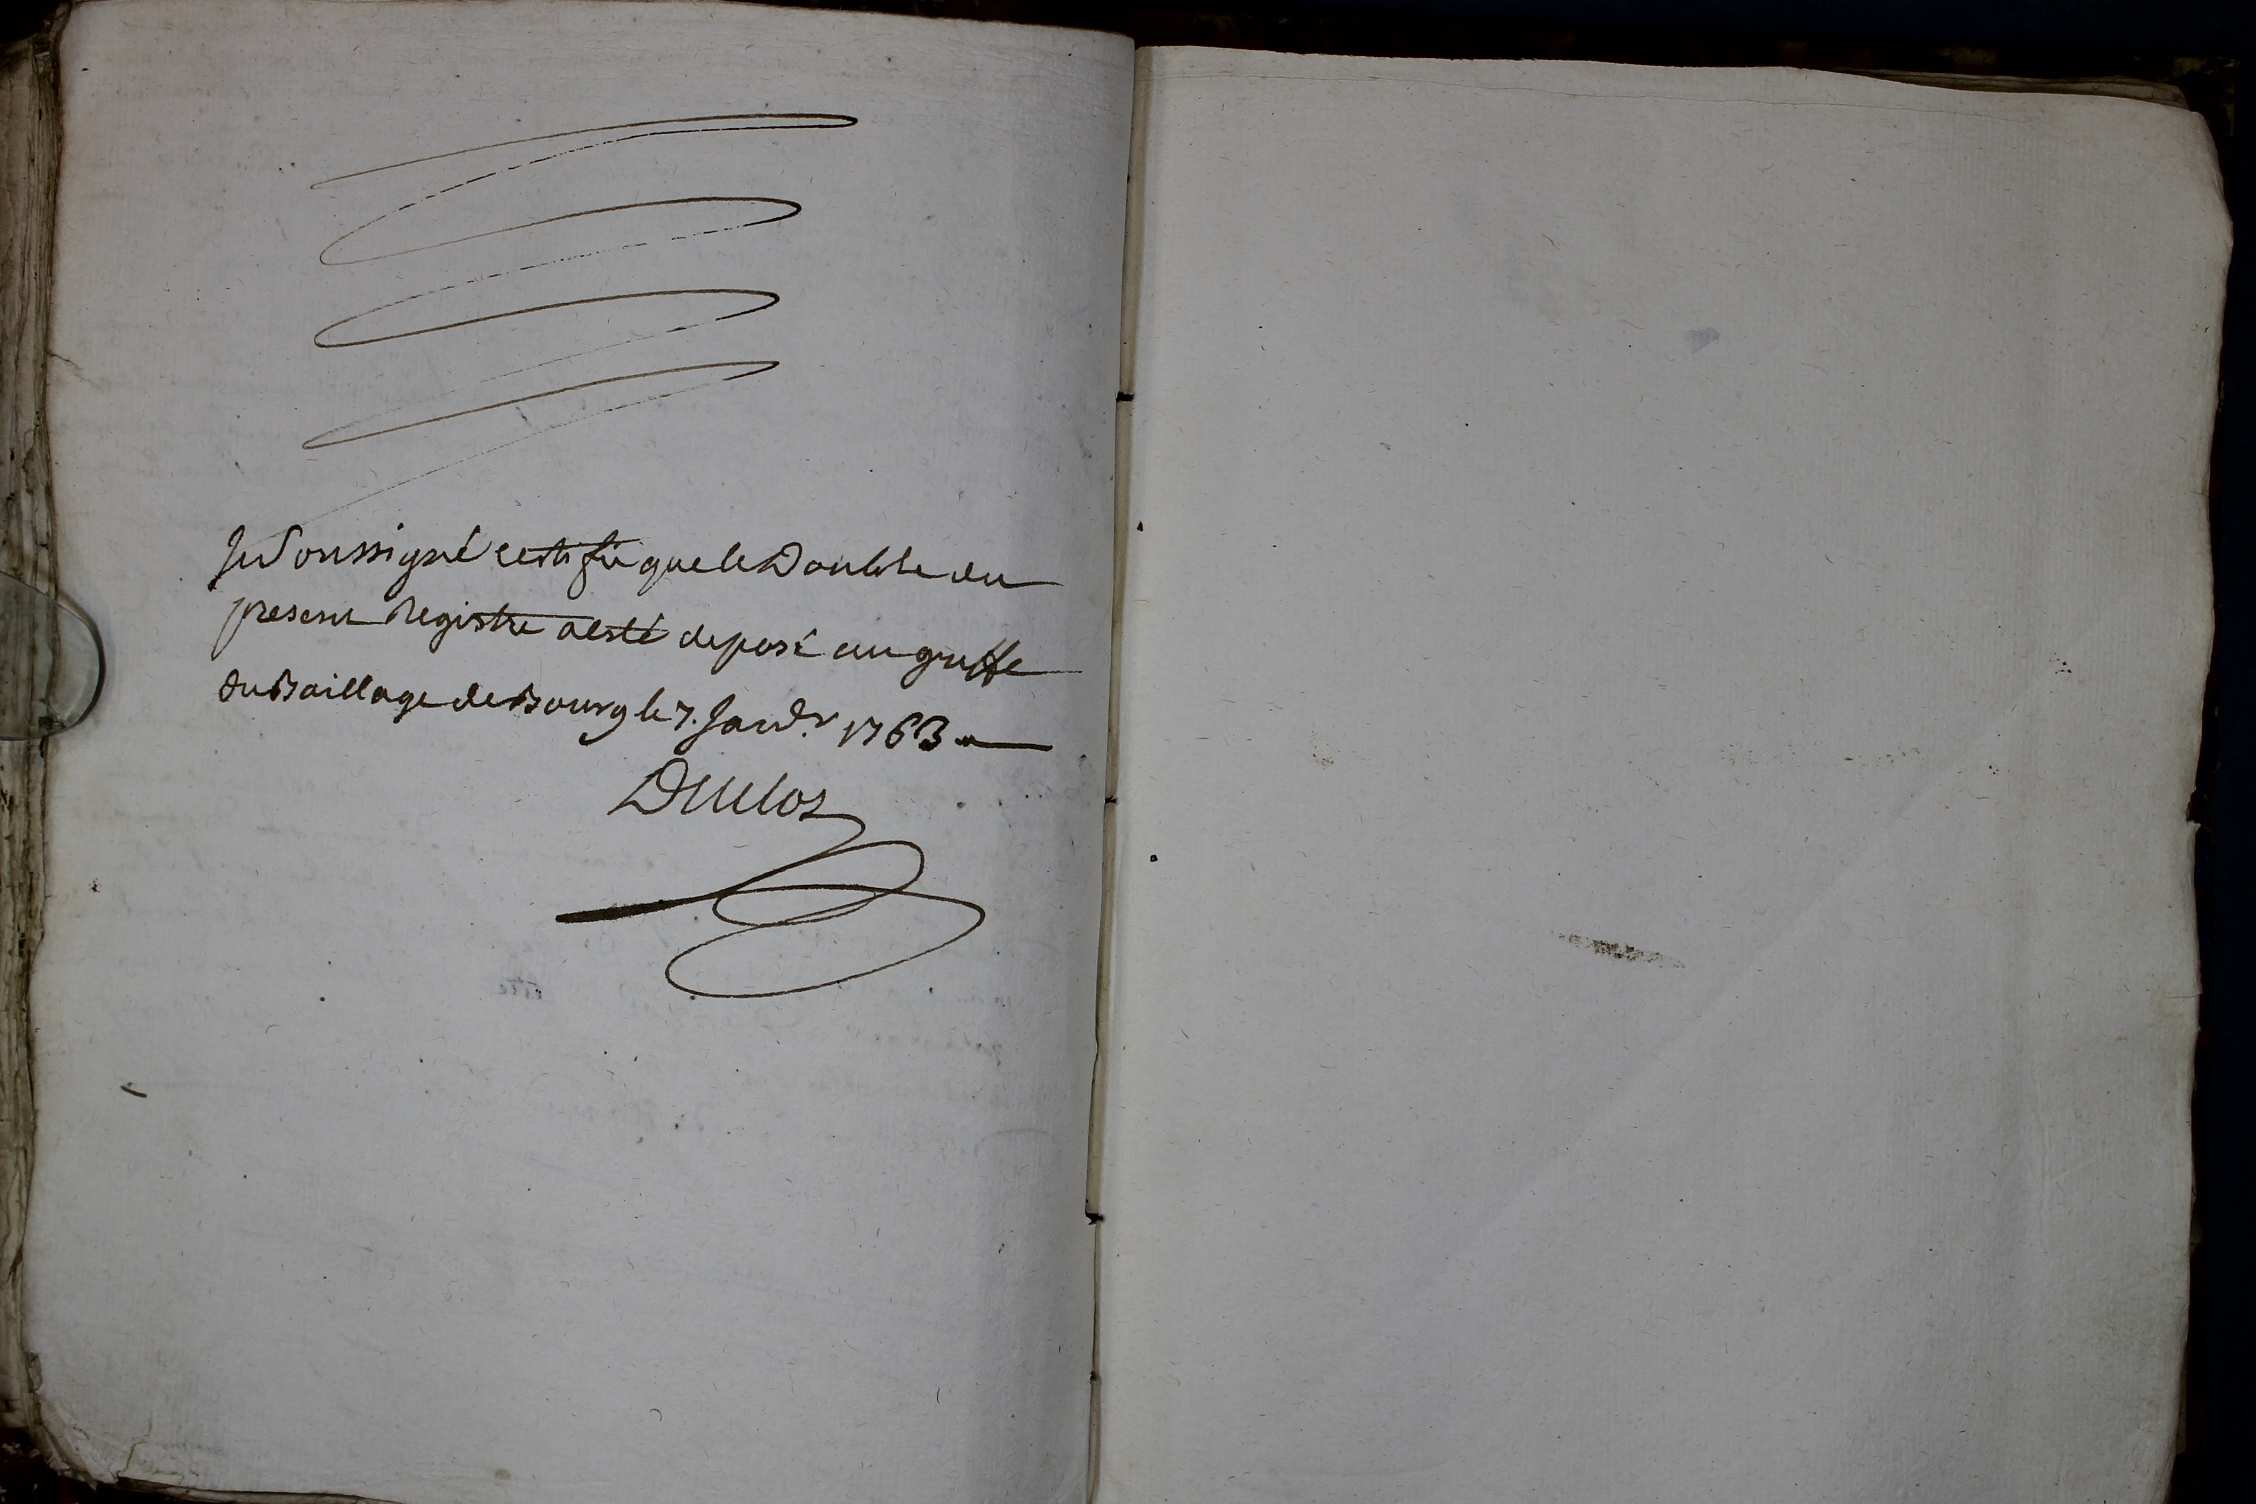 Je Soussigné certifie que le Double du
present Registre a esté deposé au greffe
du Baillage de Bourg le 7. Janv.r 1763
Duclos